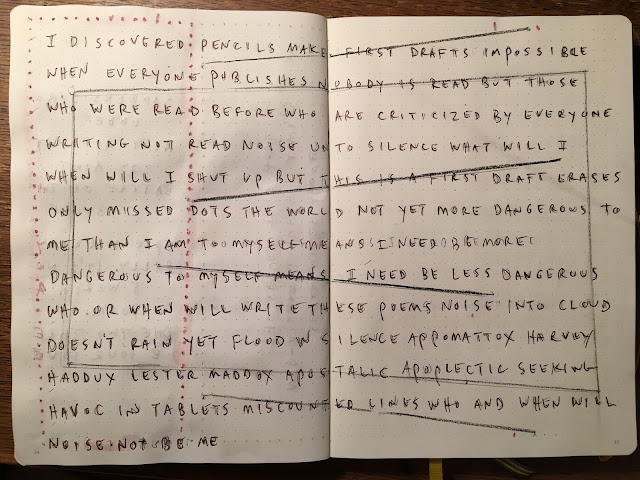 I DISCOVERED PENCILS MAKE FIRST DRAFTS IMPOSSIBLE
WHEN EVERYONE PUBLISHES NOBODY IS READ BUT THOSE
WHO WERE READ BEFORE WHO ARE CRITICIZED BY EVERYONE
WRITING NOT READ NOISE UNTO SILENCE WHAT WILL I
WHEN WILL I SHUT UP BUT THIS IS A FIRST DRAFT ERASES
ONLY MISSED DOTS THE WORLD NOT YET MORE DANGEROUS TO
ME THAN I AM TO MYSELF MEANS I NEED BE MORE
DANGEROUS TO MYSELF MEANS I NEED BE LESS DANGEROUS
WHO OR WHEN WILL WRITE THESE POEMS NOISE INTO CLOUD
DOESN'T RAIN YET FLOOD IN SILENCE APPOMATTOX HARVEY
HADDUX LESTER MADDOX APOSTALIC APOPLECTIC SEEKING
HAVOC IN TABLETS MISCOUNTED LINES WHO AND WHEN WILL
NOISE NOT BE ME